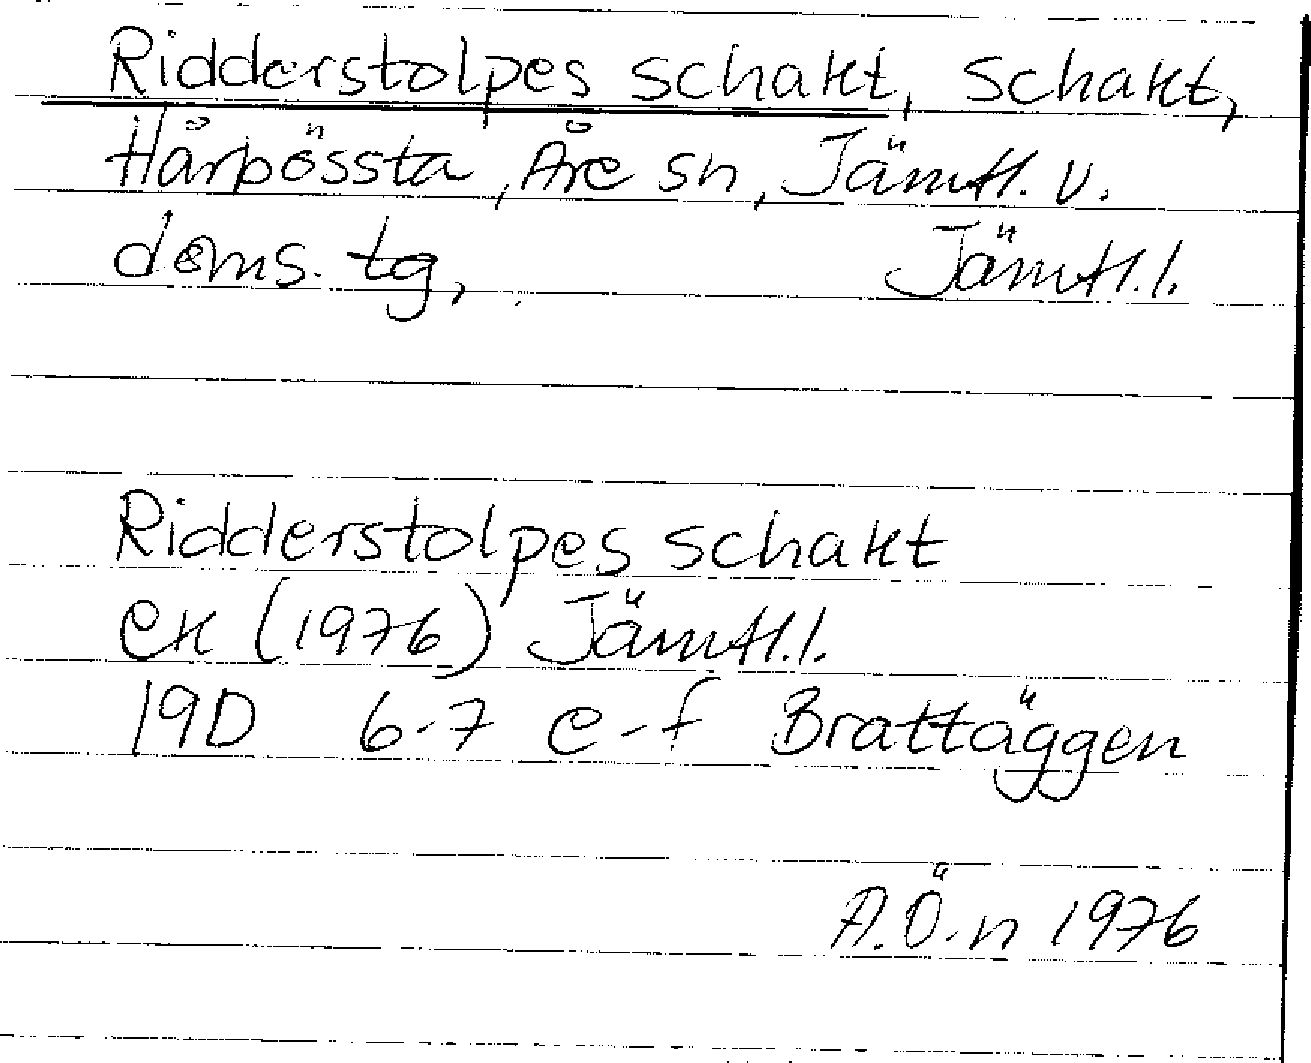 Ridderstolpes schakt, Schakt,
Hårbössta, Åre sn, Jämtl. v.
doms. tg, Jämtl.l.
Ridderstolpes schakt
ek (1976) Jämtl.l.
19D 6-7 e-f Brattäggen
A.Ö-n 1976